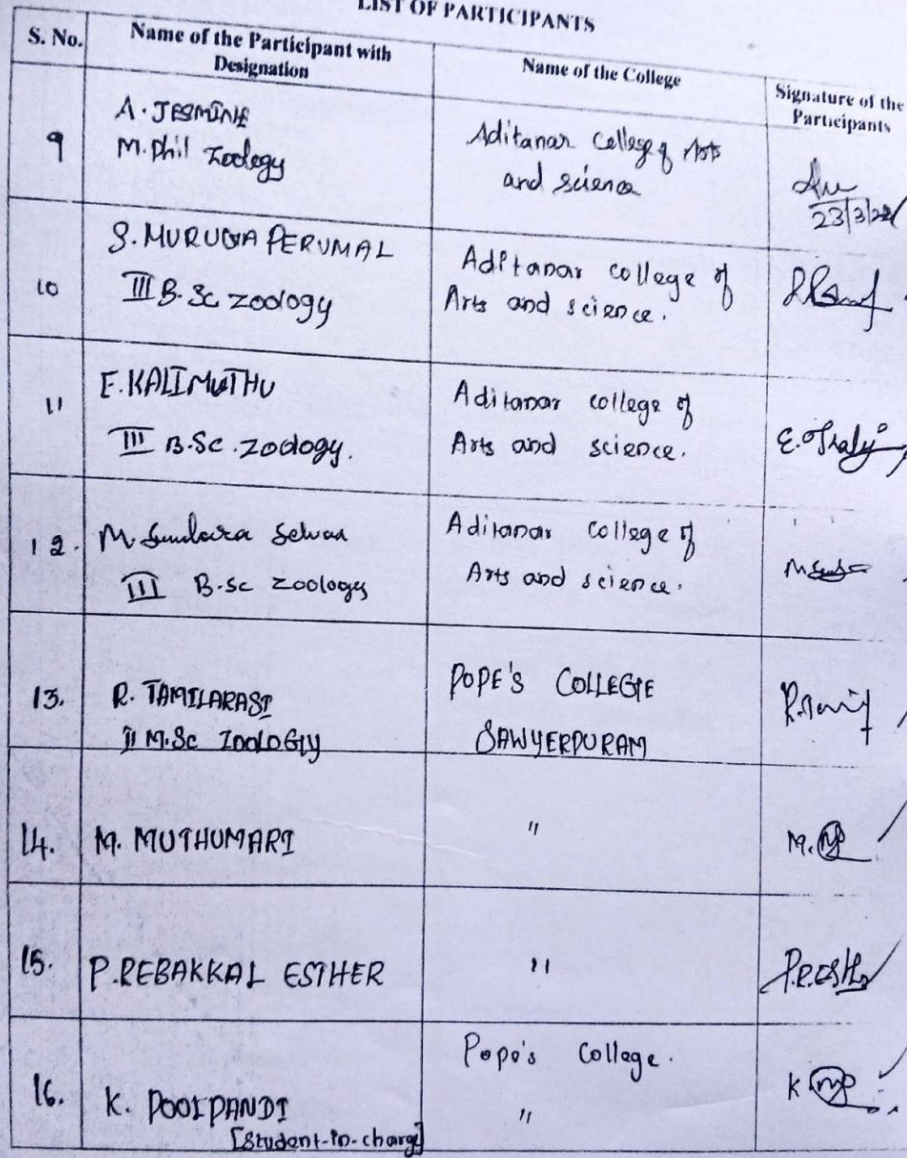 LIST OF PARTICIPANTS
S. No.
Name of the Participant with
Designation
Name of the College
Signature of the
Participants
9
A. JESMINE
M. Phil Zoology
Aditanar College of Arts
and science
23/3/22
10
S. MURUGA PERUMAL
III B. Sc zoology
Aditanar college of
Arts and science.
11
E. KALIMUTHU
III B.Sc. Zoology.
Aditanar college of
Arts and science.
12.
M. Sundara Selvan
III B.sc zoology
Aditanar College of
Arts and science.
13.
R. TAMILARASI
II M.Sc ZOOLOGY
POPE'S COLLEGE
SAWYERPURAM
14.
M. MUTHUMARI
"
15.
P. REBAKKAL ESTHER
"
16.
K. POOLPANDI
[Student-in-charge]
Pope's College.
"